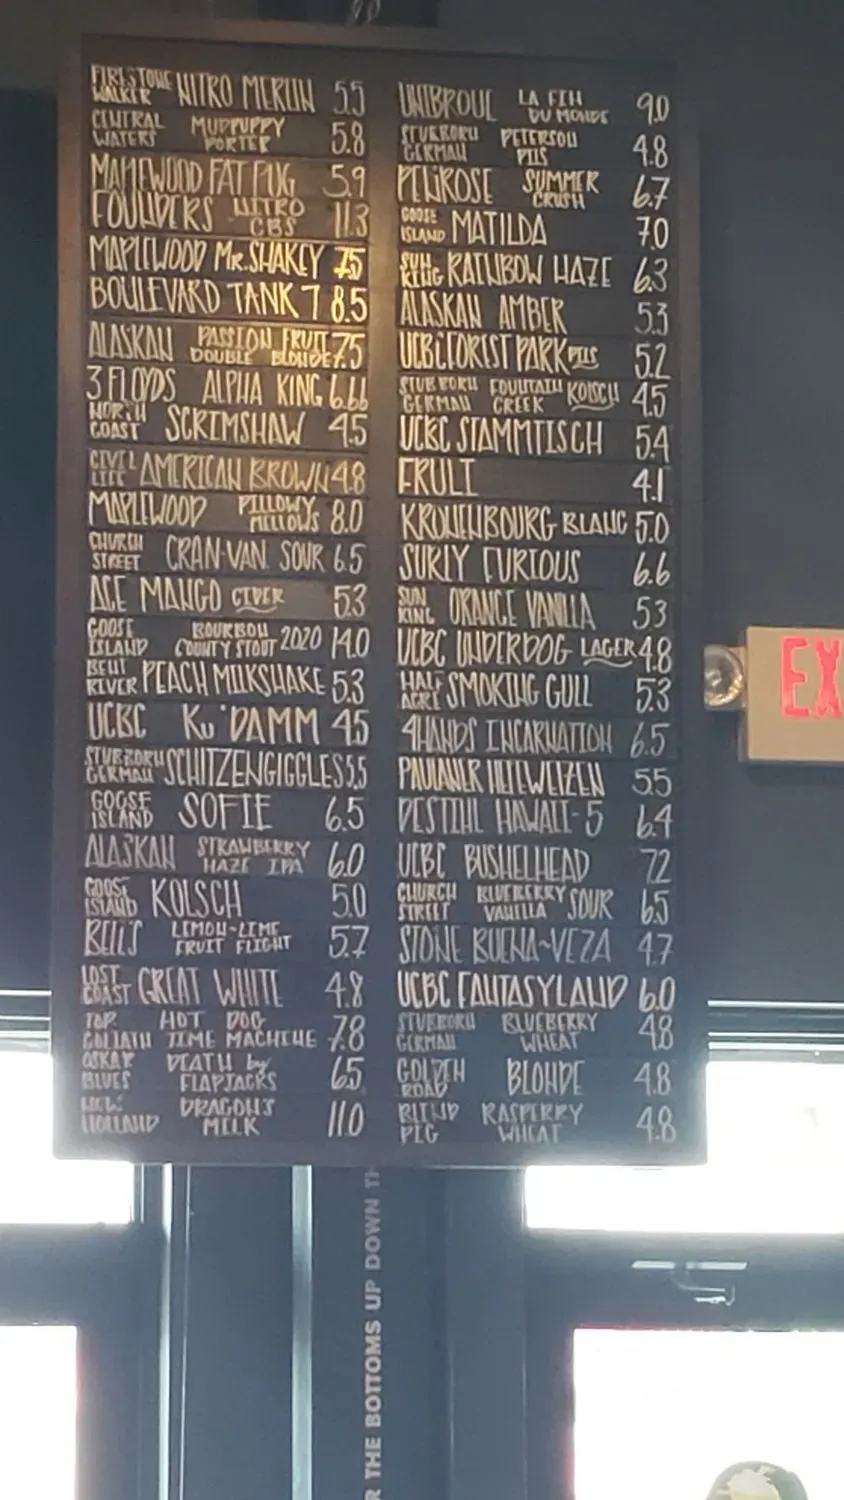 FIRESTONE WALKER NITRO MERLIN 5.5
CENTRAL WATERS MUDPUPPY PORTER 5.8
MAPLEWOOD FAT PUG 5.9
FOUNDERS NITRO CBS 11.3
MAPLEWOOD MR. SHAKEY 7.5
BOULEVARD TANK 7 8.5
ALASKAN PASSION FRUIT DOUBLE BLONDE 7.5
3 FLOYDS ALPHA KING 6.66
NORTH COAST SCRIMSHAW 4.5
CIVIL LIFE AMERICAN BROWN 4.8
MAPLEWOOD PILLOWY MELLOWS 8.0
CHURCH STREET CRAN-VAN. SOUR 6.5
ACE MANGO CIDER 5.3
GOOSE ISLAND BOURBON COUNTY STOUT 2020 14.0
BENT RIVER PEACH MILKSHAKE 5.3
UCBC KU'DAMM 4.5
STUBBORN GERMAN SCHITZENGIGGLES 5.5
GOOSE ISLAND SOFIE 6.5
ALASKAN STRAWBERRY HAZE IPA 6.0
GOOSE ISLAND KOLSCH 5.0
BELL'S LEMON-LIME FRUIT FLIGHT 5.7
LOST COAST GREAT WHITE 4.8
TOP. GOLIATH HOT DOG TIME MACHINE 7.8
OSKAR BLUES DEATH by FLAPJACKS 6.5
NEW HOLLAND DRAGON'S MILK 11.0
UNIBROUE LA FIN DU MONDE 9.0
STUBBORN GERMAN PETERSON PILS 4.8
PENROSE SUMMER CRUSH 6.7
GOOSE ISLAND MATILDA 7.0
SUN KING RAINBOW HAZE 6.3
ALASKAN AMBER 5.3
UCBC FOREST PARK PILS 5.2
STUBBORN GERMAN FOUNTAIN CREEK KOLSCH 4.5
UCBC STAMMTISCH 5.4
FRULI 4.1
KRONENBOURG BLANC 5.0
SURLY FURIOUS 6.6
SUN KING ORANGE VANILLA 5.3
UCBC UNDERDOG LAGER 4.8
HALF ACRE SMOKING GULL 5.3
4HANDS INCARNATION 6.5
PAULANER HEFEWEIZEN 5.5
DESTIHL HAWAII-5 6.4
UCBC BUSHELHEAD 7.2
CHURCH STREET BLUEBERRY VANILLA SOUR 6.5
STONE BUENA~VEZA 4.7
UCBC FANTASYLAND 6.0
STUBBORN GERMAN BLUEBERRY WHEAT 4.8
GOLDEN ROAD BLONDE 4.8
BLIND PIG RASPERRY WHEAT 4.8
EX
THE BOTTOMS UP DOWN